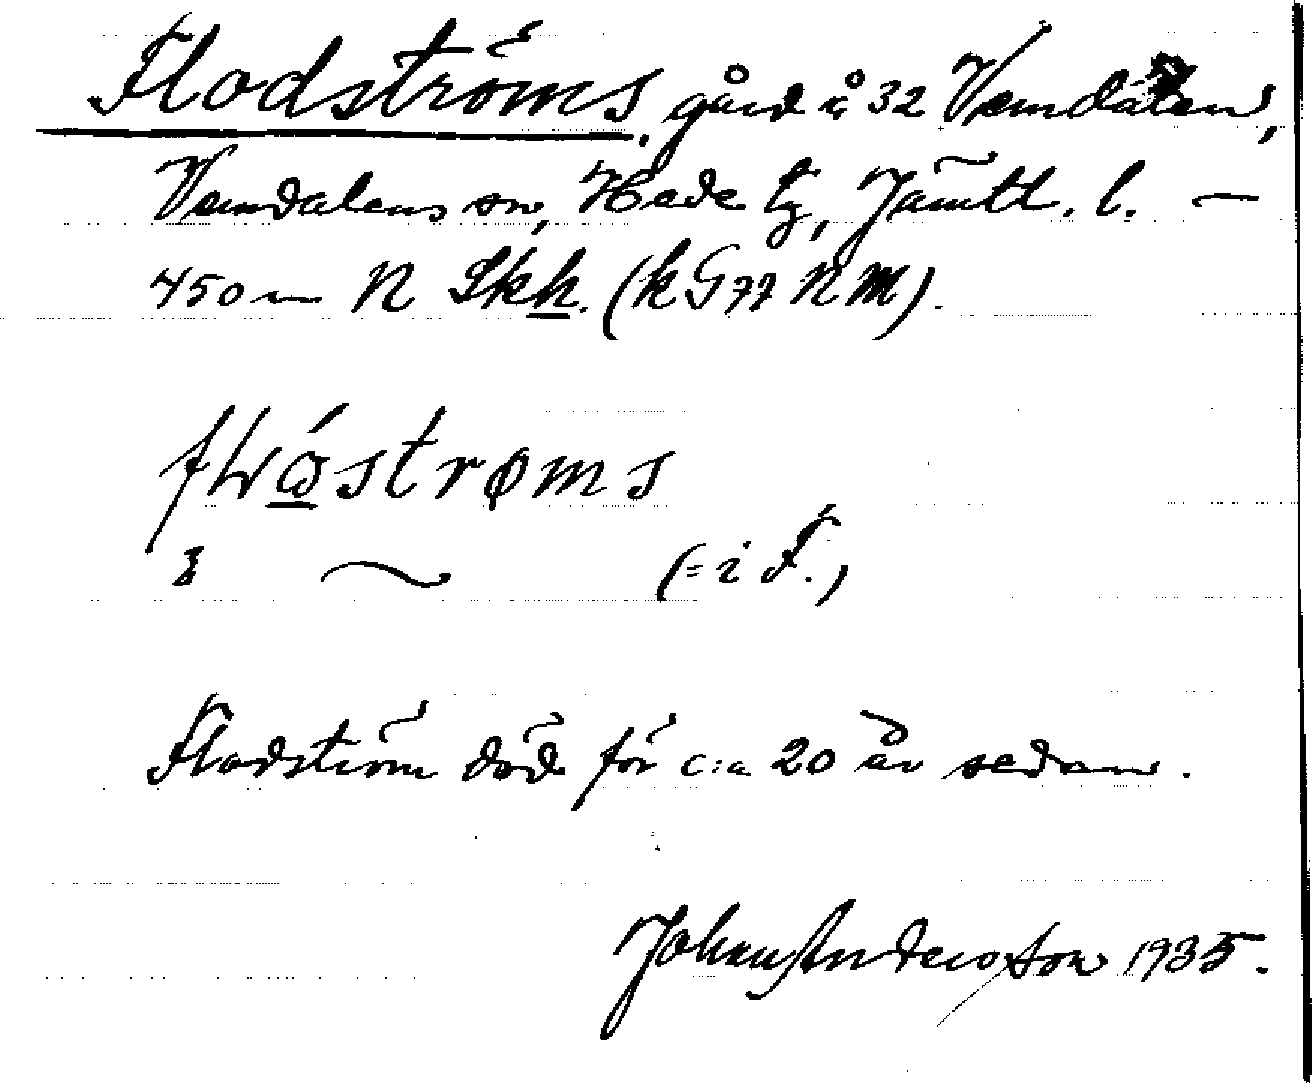 Flodströms, gård i 32 Vemdalen,
Vemdalens sn, Hede tg, Jämtl. l. —
450 m N Skh. (k G 77 N M).
strøms
(= i F.)
Flodström död för c:a 20 år sedan.
Johan Andersson 1935.